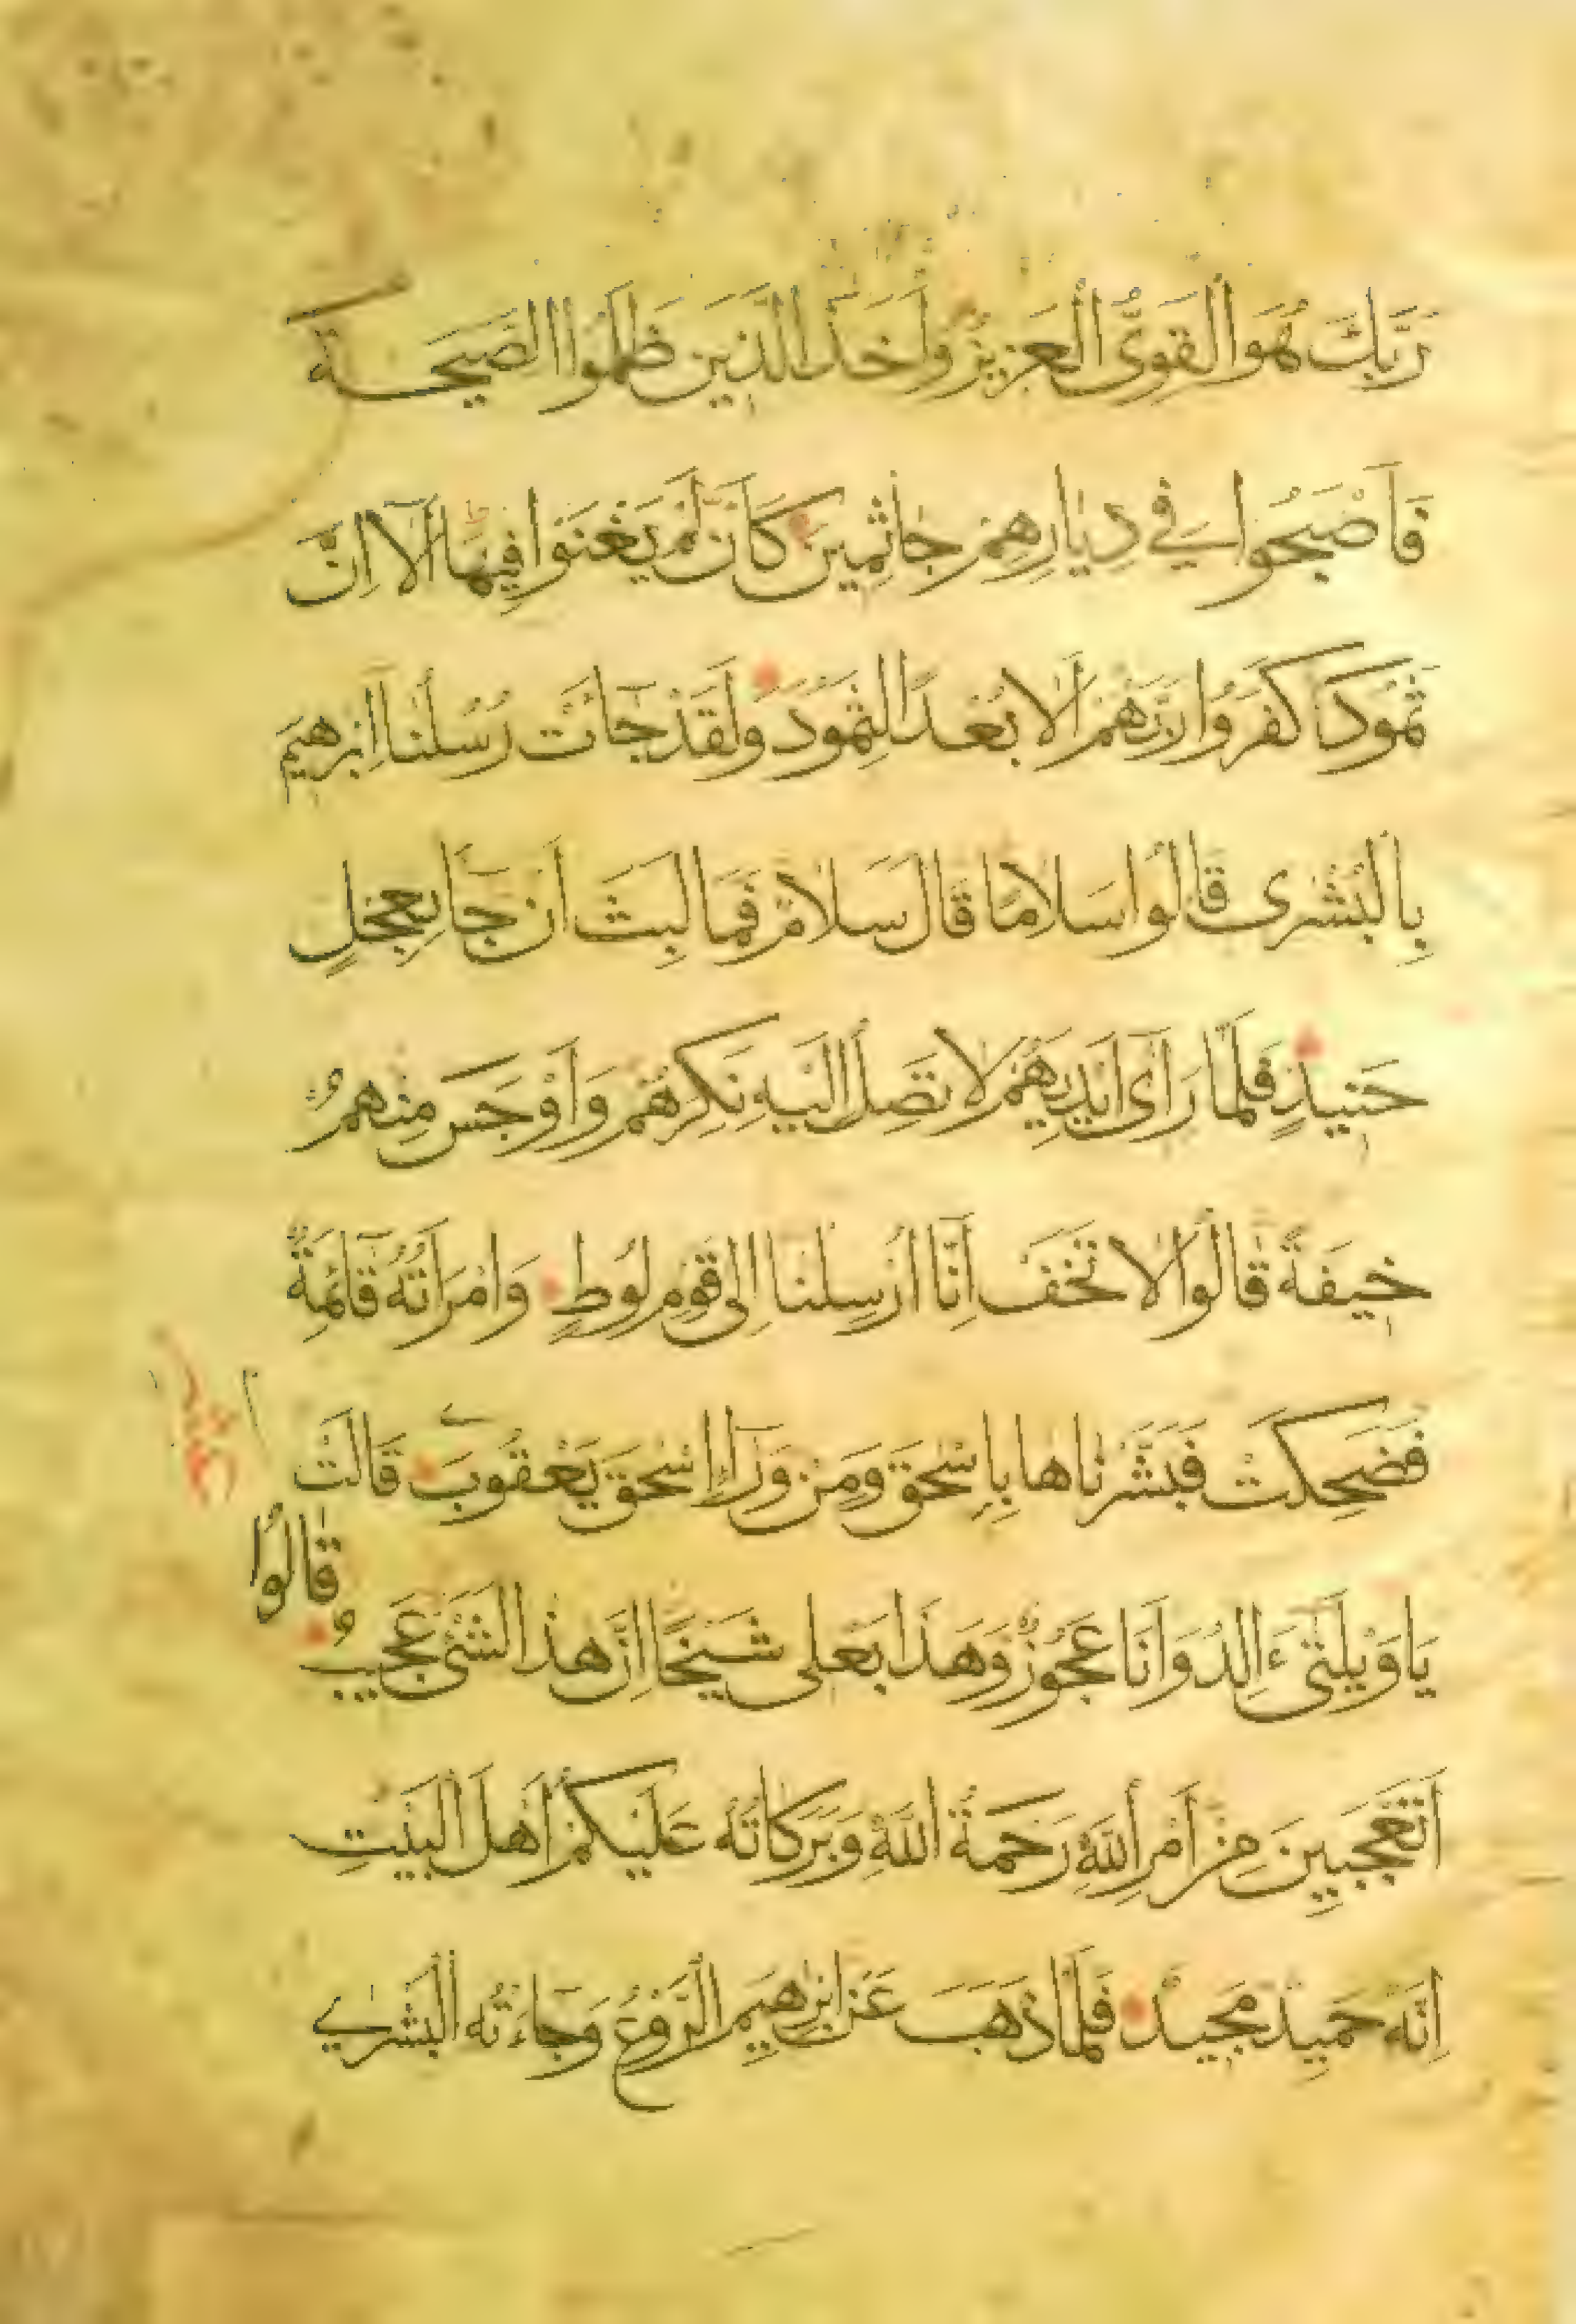 رَبَّكَ هُوَ الْقَوِىُّ الْعَزِيزُ وَاَخَذَ الَّذِينَ ظَلَمُوا الصَّيحَةُ
فَاَصْبَحُوا فِي دِيَارِهِمْ جَاثِمِينَ كَاَنْ لَمْ يَغْنَوْا فِيهَا اَلَا اِنَّ
ثَمُودَ كَفَرُوا رَبَّهُمْ اَلَا بُعْدًا لِثَمُودَ وَلَقَدْ جَائَتْ رُسُلُنَا اِبْرٰهِيمَ
بِالْبُشْرٰى قَالُوا سَلَامًا قَالَ سَلَامٌ فَمَا لَبِثَ اَنْ جَا بِعِجْلٍ
حَنِيذٍ فَلَمَّا رَاٰى اَيْدِيَهُمْ لَا تَصِلُ اِلَيْهِ نَكِرَهُمْ وَاَوْجَسَ مِنْهُمْ
خِيفَةً قَالُوا لَا تَخَفْ اِنَّا اُرْسِلْنَا اِلٰى قَوْمِ لُوطٍ وَامْرَاَتُهُ قَائِمَةٌ
فَضَحِكَتْ فَبَشَّرْنَاهَا بِاِسْحٰقَ وَمِنْ وَرَاءِ اِسْحٰقَ يَعْقُوبَ قَالَتْ
يَا وَيْلَتٰى ءَاَلِدُ وَاَنَا عَجُوزٌ وَهٰذَا بَعْلِى شَيْخًا اِنَّ هٰذَا لَشَىْءٌ عَجِيبٌ
قَالُوا
اَتَعْجَبِينَ مِنْ اَمْرِ اللّٰهِ رَحْمَةُ اللّٰهِ وَبَرَكَاتُهُ عَلَيْكُمْ اَهْلَ الْبَيْتِ
اِنَّهُ حَمِيدٌ مَجِيدٌ فَلَمَّا ذَهَبَ عَنْ اِبْرٰهِيمَ الرَّوْعُ وَجَاءَتْهُ الْبُشْرٰي